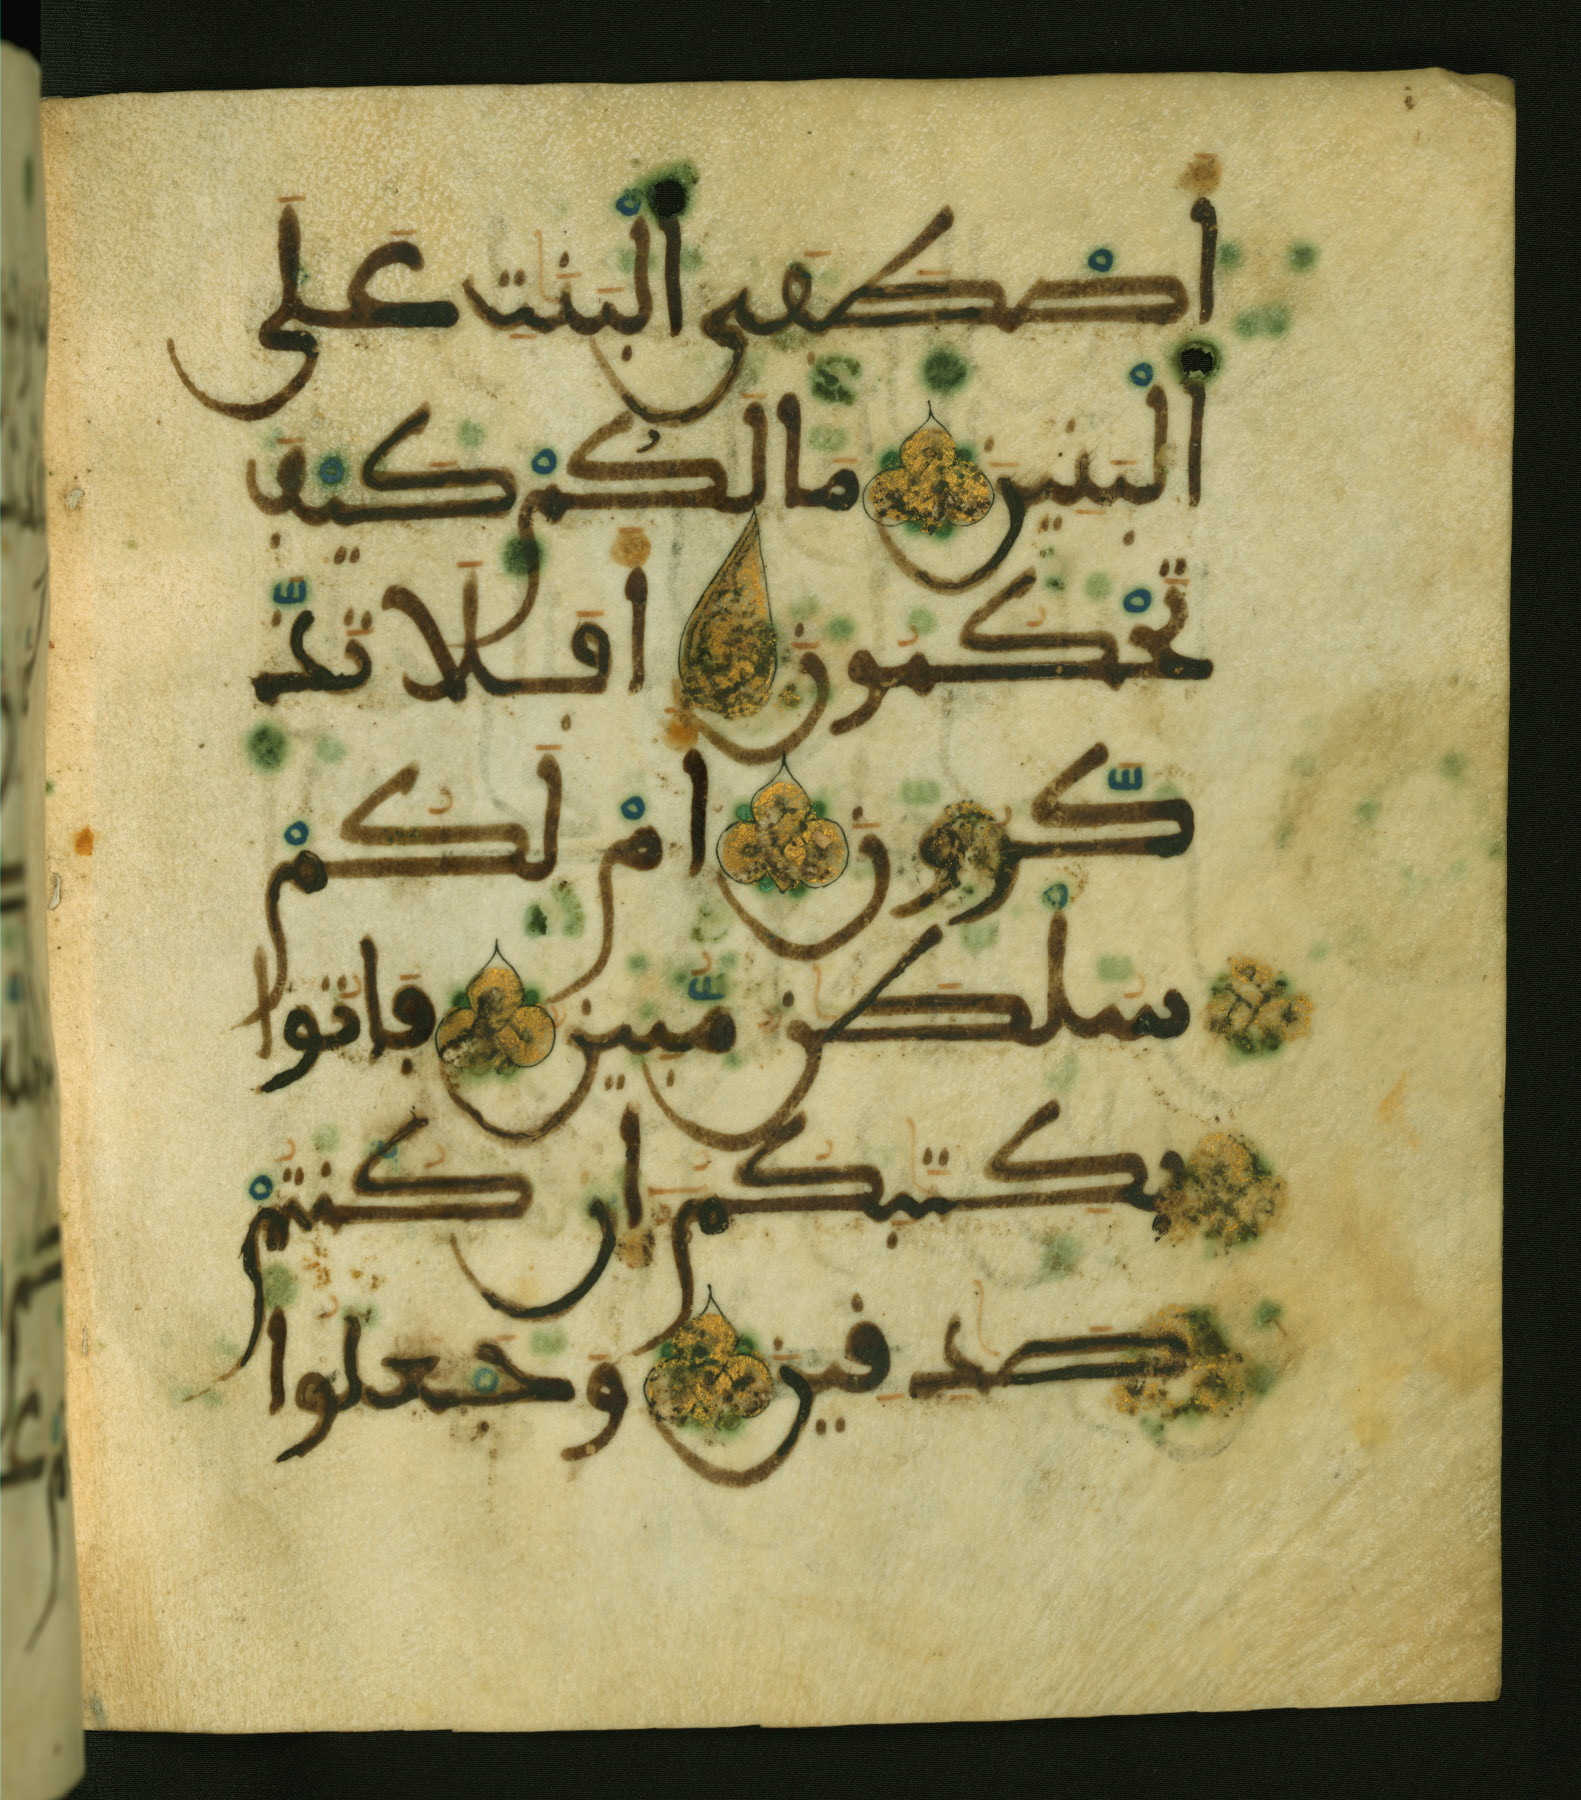 أَصْطَفَى ٱلْبَنَٰتِ عَلَى
ٱلْبَنِينَ مَا لَكُمْ كَيْفَ
تَحْكُمُونَ أَفَلَا تَذَّ
كَّرُونَ أَمْ لَكُمْ
سُلْطَٰنٌ مُّبِينٌ فَاتُوا
بِكِتَٰبِكُمُ إِن كُنتُمْ
صَٰدِقِينَ وَجَعَلُوا